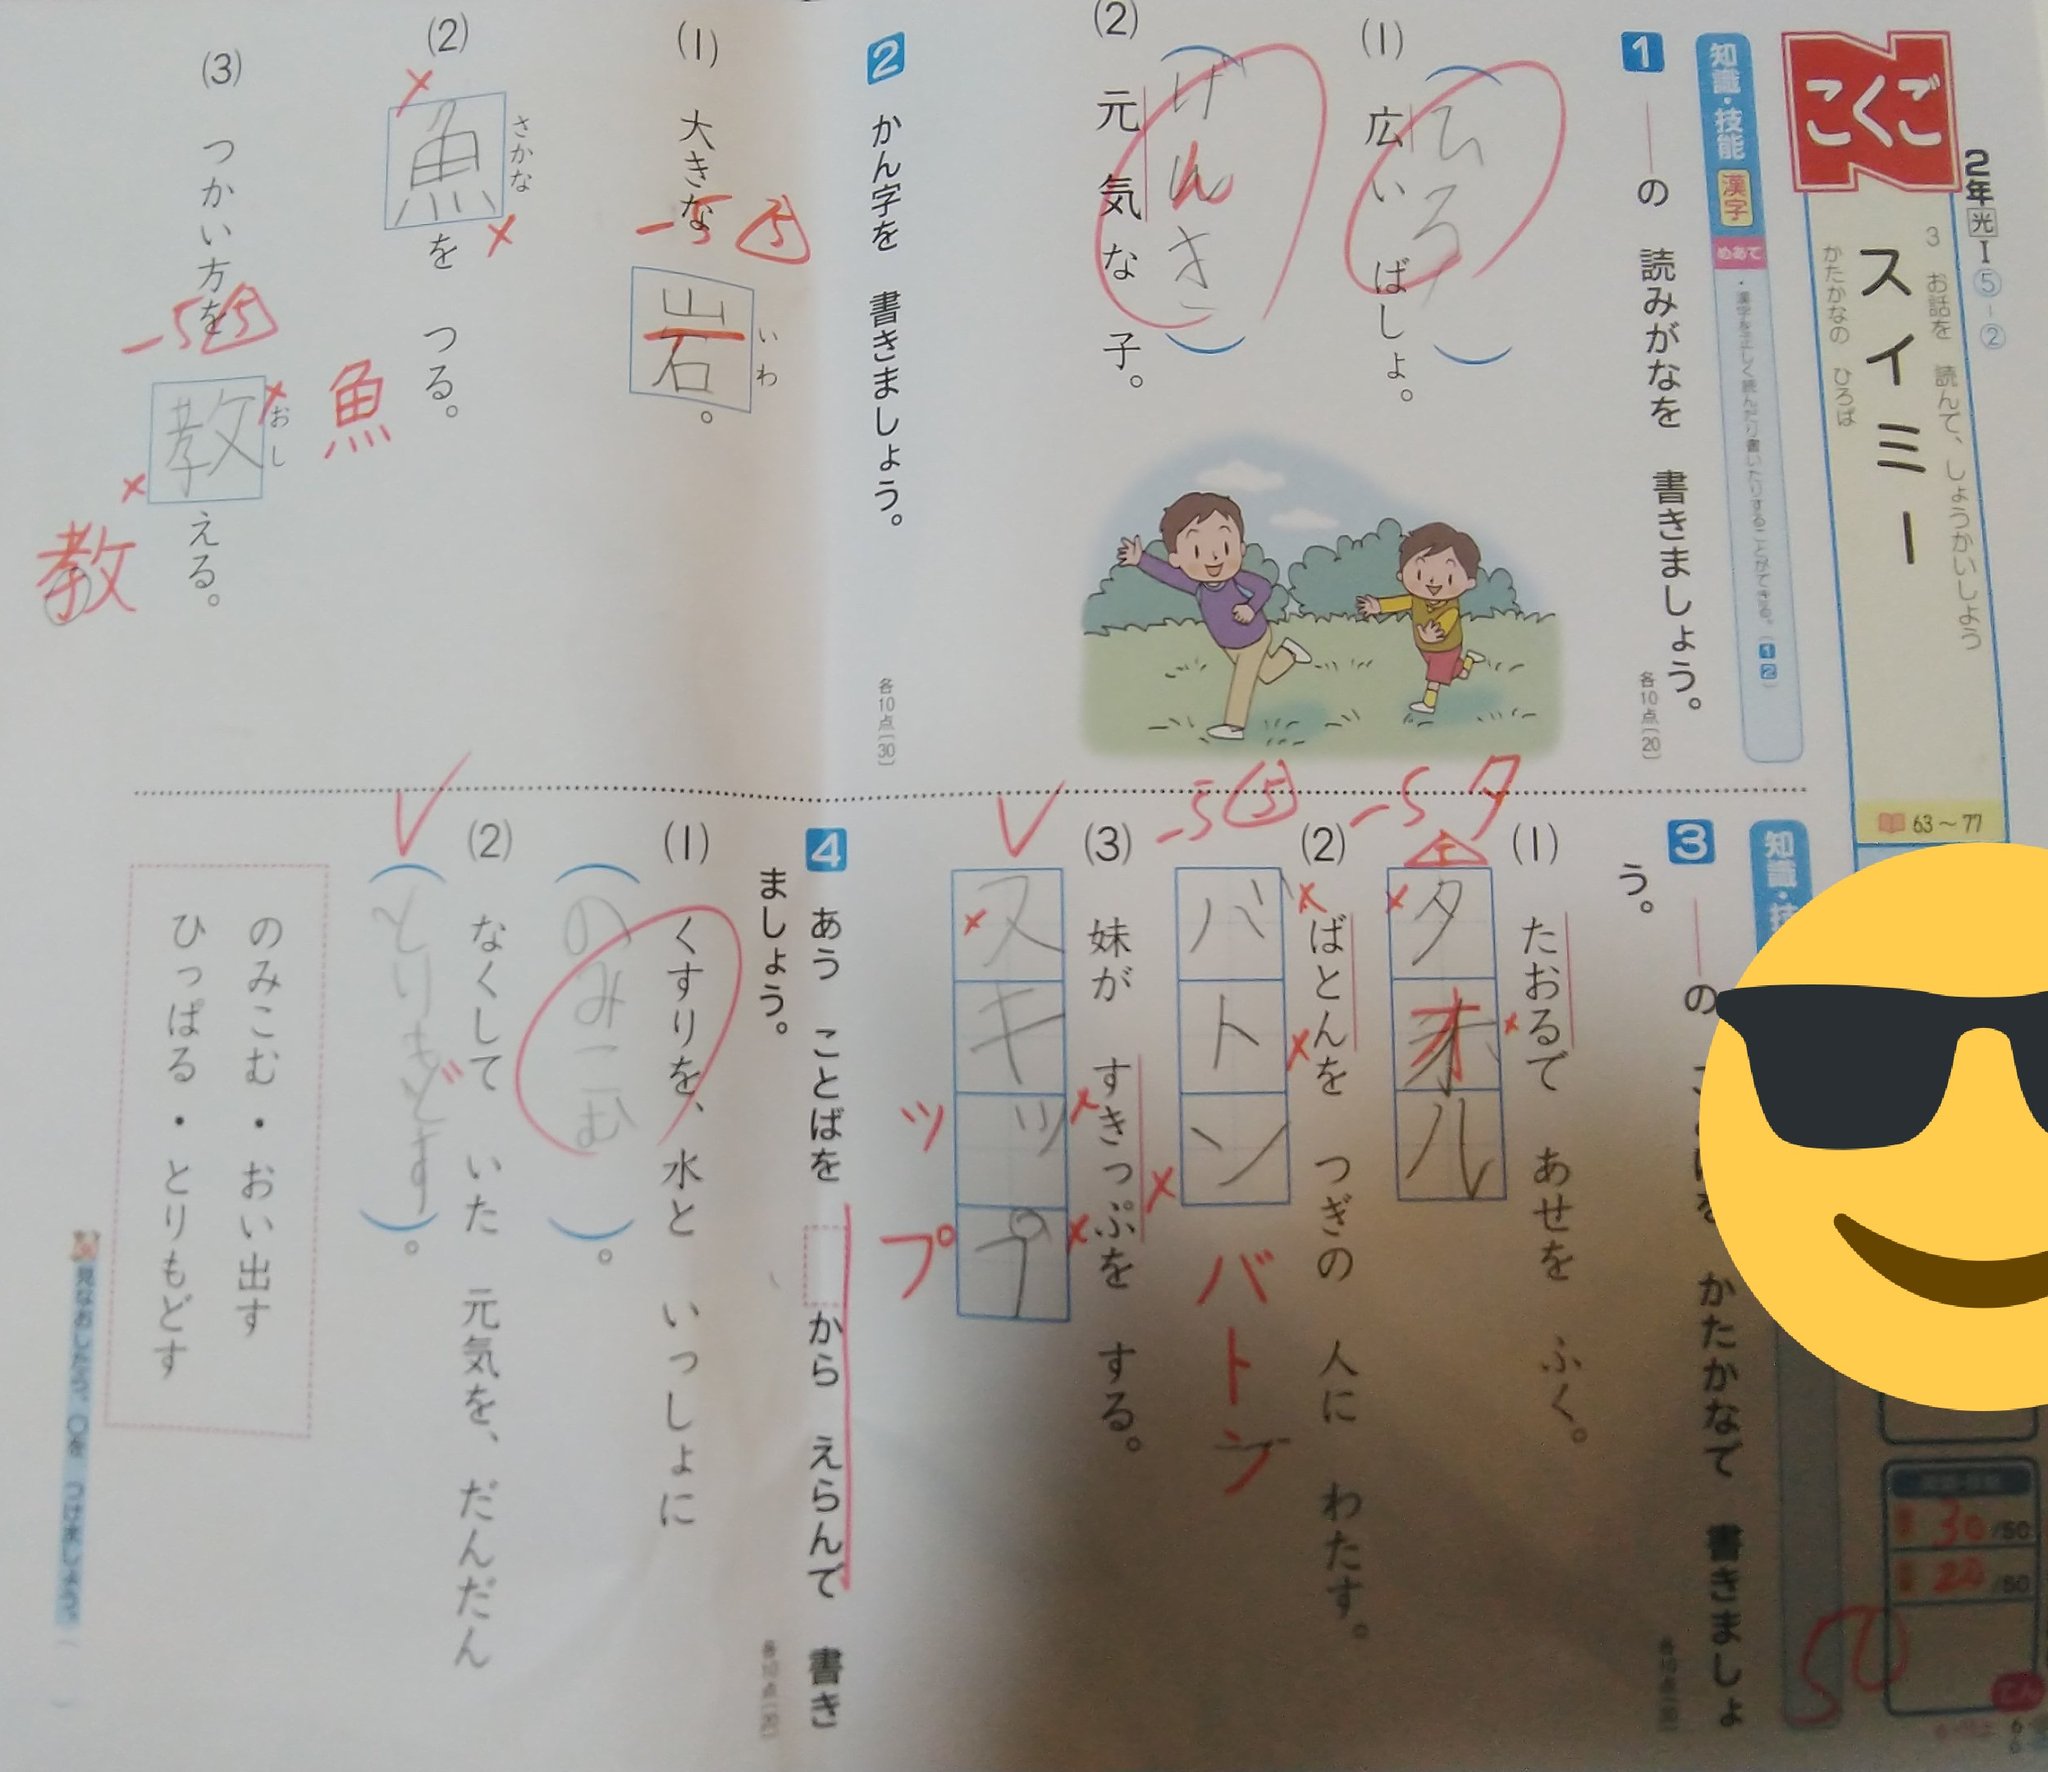 こくご
2年 光 Ⅰ ⑤-②
3 お話を 読んで、しょうかいしよう
かたかなの ひろば
スイミー
63～77
知識・技能 漢字
めあて
・漢字を正しく読んだり書いたりすることができる。(1 2)
1 ―の 読みがなを 書きましょう。
各10点(20)
(1) 広い ばしょ。
ひろ
(2) 元気な 子。
げんき
2 かん字を 書きましょう。
各10点(30)
(1) 大きな 岩。
いわ
-5 5
(2) 魚を つる。
さかな
魚
(3) つかい方を 教える。
おし
-5 5
教
知識・技
3 ―の
かたかなで 書きましょ
う。
(1) たおるで あせを ふく。
タオル
-5
(2) ばとんを つぎの 人に わたす。
バトン
-5 5
バトン
(3) 妹が すきっぷを する。
スキップ
ッ
プ
4 あう ことばを から えらんで 書き
ましょう。
(1) くすりを、水と いっしょに
(のみこむ)。
(2) なくして いた 元気を、だんだん
(とりもどす)。
のみこむ・おい出す
ひっぱる・とりもどす
見なおしたら、○を つけましょう。( )
30/50
20/50
50